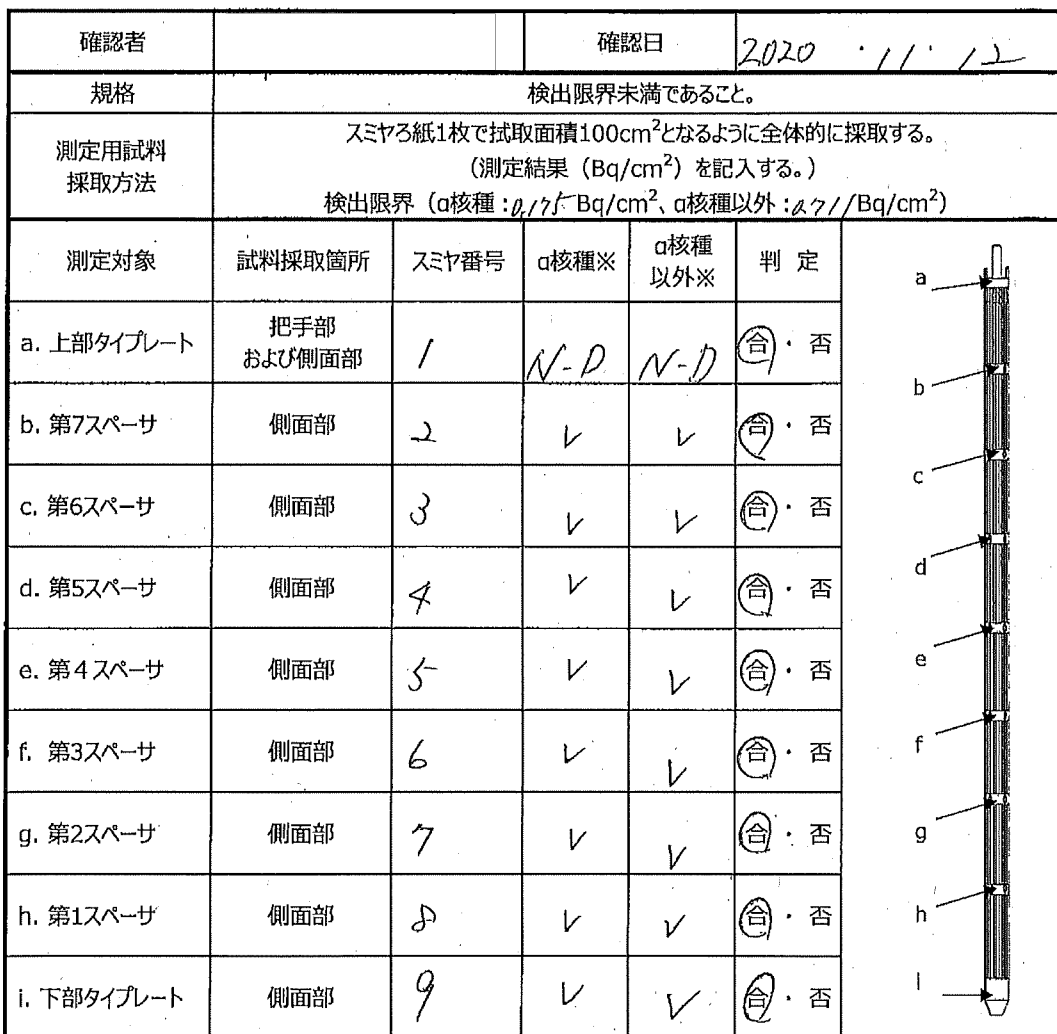 確認者 確認日 2020 ・11・12
規格 検出限界未満であること。
測定用試料
採取方法
スミヤろ紙1枚で拭取面積100cm²となるように全体的に採取する。
(測定結果(Bq/cm²)を記入する。)
検出限界(α核種:0.175 Bq/cm²、α核種以外: Bq/cm²)
測定対象 試料採取箇所 スミヤ番号 α核種※ α核種
以外※ 判 定
a. 上部タイプレート 把手部
および側面部 1 N-D N-D 合・否
b. 第7スペーサ 側面部 2 ✓ ✓ 合・否
c. 第6スペーサ 側面部 3 ✓ ✓ 合・否
d. 第5スペーサ 側面部 4 ✓ ✓ 合・否
e. 第4スペーサ 側面部 5 ✓ ✓ 合・否
f. 第3スペーサ 側面部 6 ✓ ✓ 合・否
g. 第2スペーサ 側面部 7 ✓ ✓ 合・否
h. 第1スペーサ 側面部 8 ✓ ✓ 合・否
i. 下部タイプレート 側面部 9 ✓ ✓ 合・否
a
b
c
d
e
f
g
h
I